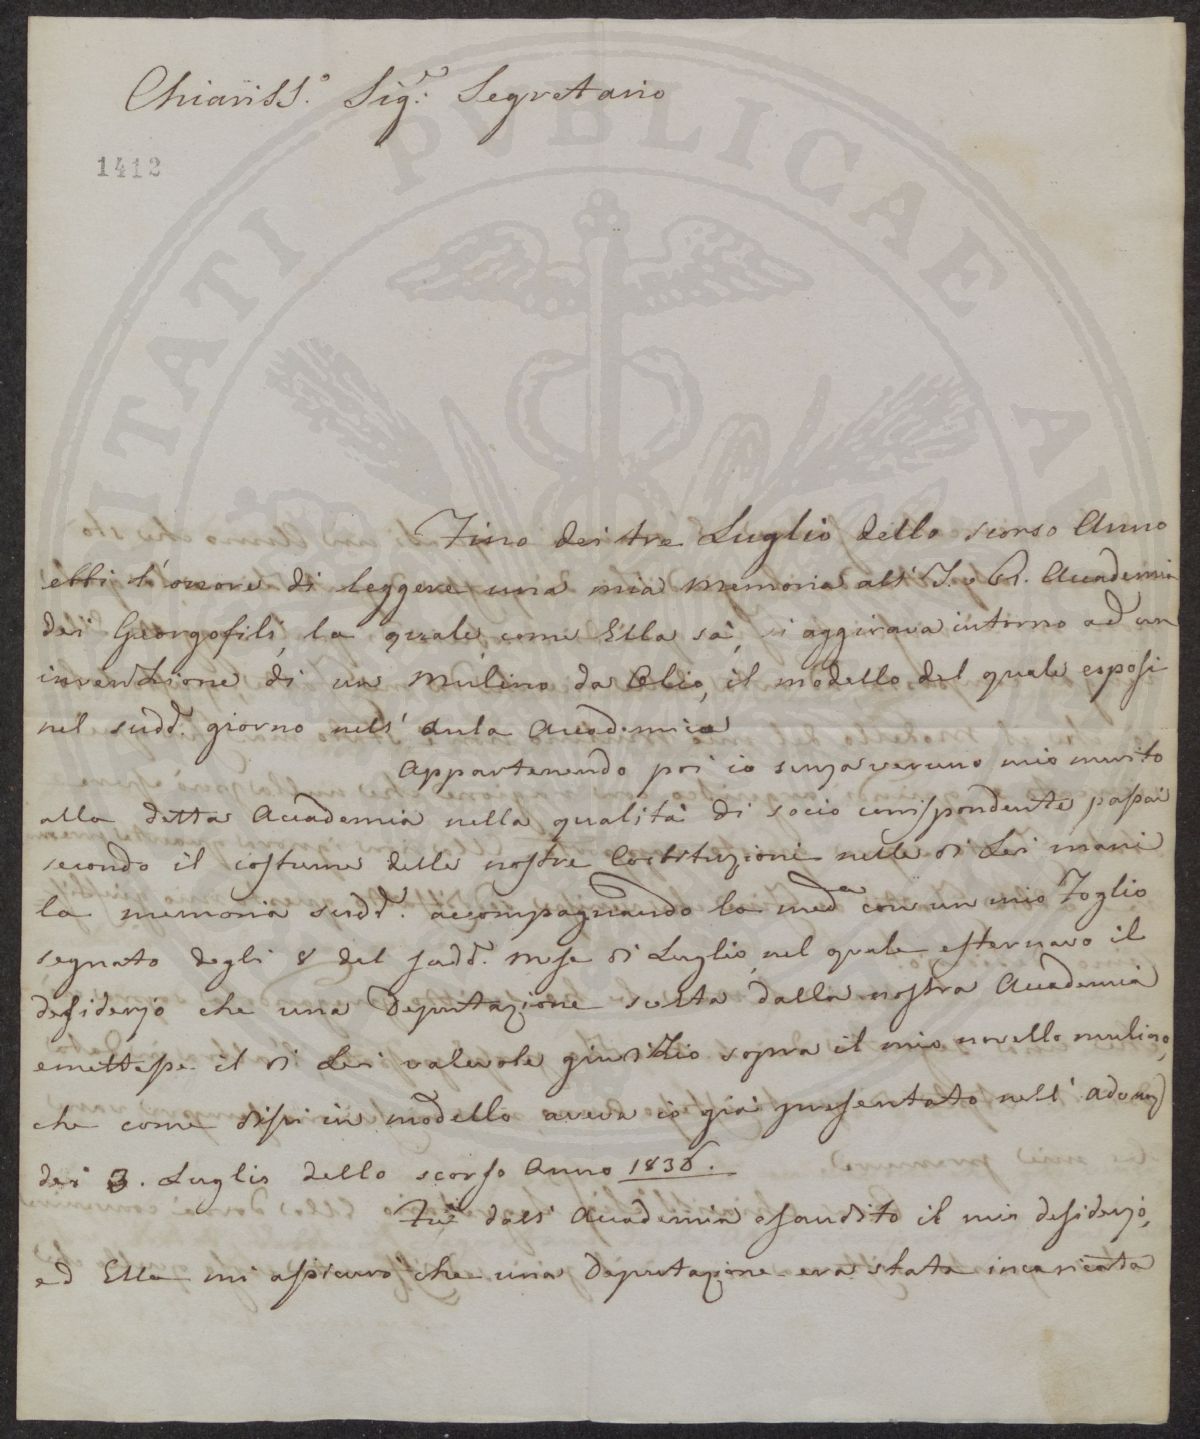 Chiariss.º Sig.r Segretario
1412
PVBLICAE
Fino dei tre Luglio dello scorso Anno
ebbi l'onore di leggere una mia memoria all' I. e R. Accademia
dei Georgofili, la quale come Ella sà, si aggirava intorno ad un
invenzione di un Mulino da Olio, il modello del quale esposi
nel sudd.º giorno nell' aula Accademica
Appartenendo poi io senza veruno mio merito
alla detta Accademia nella qualità di socio corrispondente passai
secondo il costume delle nostre Costituzioni nelle di Lei mani
la memoria sudd.ª accompagnando la med.a con un mio Foglio
segnato degli 8 del sudd.º Mese di Luglio, nel quale esternavo il
desiderjo che una Deputazione scelta dalla nostra Accademia
emettesse il di Lei valevole giudizio sopra il mio novello mulino,
che come dissi in modello aveva io già presentato nell'
dei 3. Luglio dello scorso Anno 1836.
Fù dall' Accademia esaudito il mio desiderjo,
ed Ella mi assicurò che una Deputazione era stata incaricata